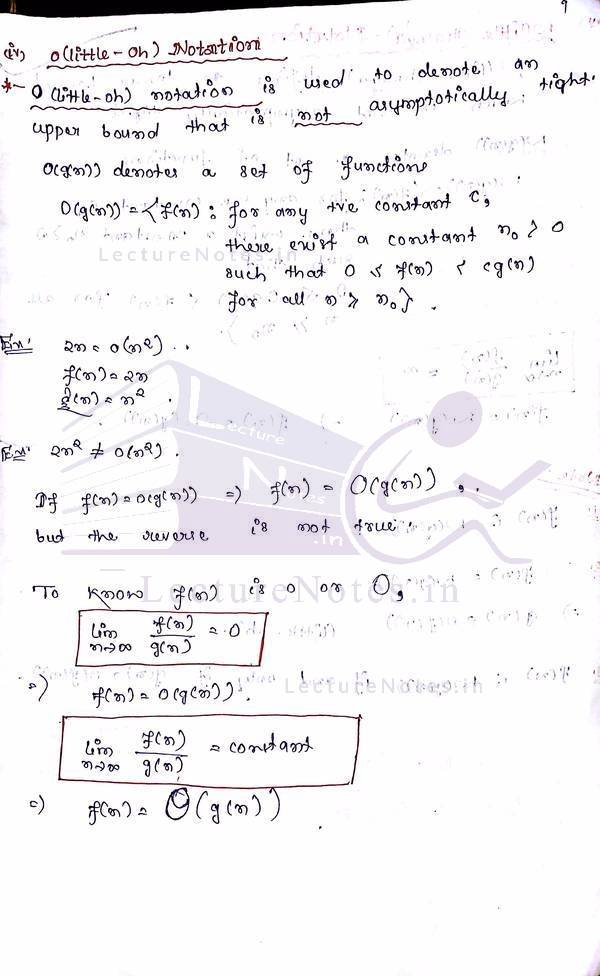 9
(iv) o(little-oh) Notation
*- o (little-oh) notation is used to denote an
upper bound that is not asymptotically tight.
o(g(n)) denotes a set of functions
o(g(n)) = {f(n) : for any +ve constant c,
there exist a constant n₀ > 0
LectureNotes.in
such that 0 ≤ f(n) < cg(n)
for all n ≥ n₀}.
Ex: 2n = o(n²).
f(n) = 2n
g(n) = n².
Lecture
Notes
.in
Ex: 2n² ≠ o(n²).
If f(n) = o(g(n)) => f(n) = O(g(n)),
but the reverse is not true.
To know f(n) is o or O,
LectureNotes.in
lim n→∞ f(n)/g(n) = 0
=) f(n) = o(g(n)).
LectureNotes.in
lim n→∞ f(n)/g(n) = constant
=) f(n) = O(g(n))